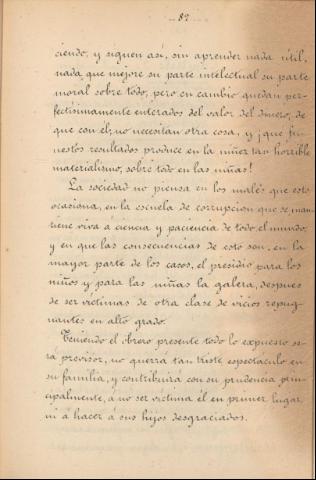 - 82 -
ciendo, y siguen así, sin aprender nada útil,
nada que mejore su parte intelectual su parte
moral sobre todo, pero en cambio quedan per-
fectisimamente enterados del valor del dinero, de
que con él, no necesitan otra cosa, y ¡qué fu-
nestos resultados produce en la niñez tan horrible
materialismo, sobre todo en las niñas!
La sociedad no piensa en los males que esto
ocasiona, en la escuela de corrupcion que se man
tiene viva á ciencia y paciencia de todo el mundo,
y en que las consecuencias de esto son, en la
mayor parte de los casos, el presidio para los
niños y para las niñas la galera, despues
de ser victimas de otra clase de vicios repug
nantes en alto grado.
Teniendo el obrero presente todo lo expuesto se-
rá previsor, no querrá tan triste espectaculo en
su familia, y contribuirá con su prudencia prin-
cipalmente, á no ser victima él en primer lugar,
ni á hacer á sus hijos desgraciados.